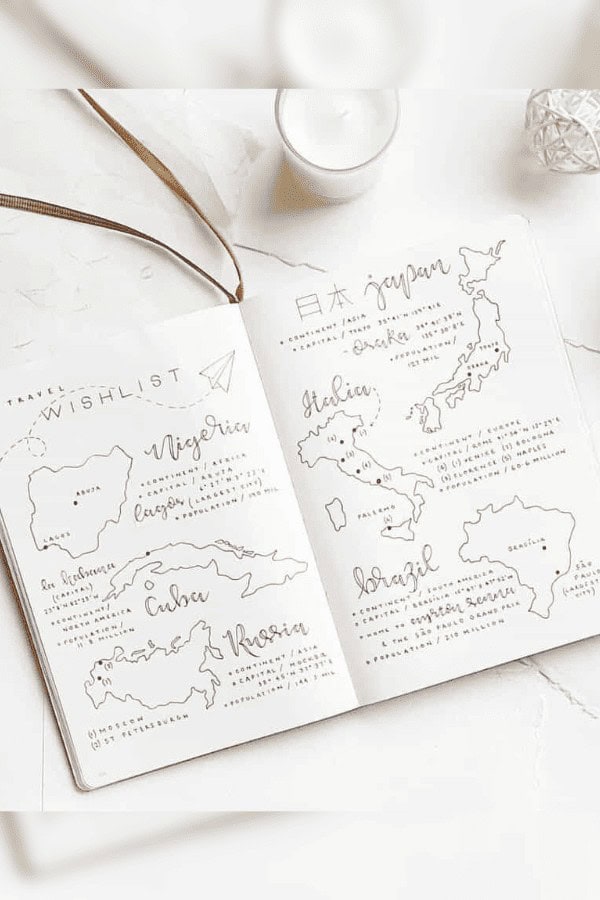 TRAVEL
WISHLIST
Nigeria
• CONTINENT / AFRICA
• CAPITAL / ABUJA
lagos (LARGEST CITY)
• POPULATION / 190 MIL
ABUJA
LAGOS
la Habana
(CAPITAL)
• CONTINENT /
NORTH AMERICA
• POPULATION /
MILLION
Cuba
Russia
• CONTINENT / ASIA
• CAPITAL /
• POPULATION / MIL
(1)
(2)
(1) MOSCOW
(2) ST PETERSBURGH
日本 japan
• CONTINENT / ASIA
• CAPITAL / TOKYO
- osaka
• POPULATION /
127 MIL
OSAKA
Italia
• CONTINENT / EUROPE
• CAPITAL / ROME
(1) VENICE (2) BOLOGNA
(3) FLORENCE (5) NAPLES
• POPULATION / 60.6 MILLION
PALERMO
brazil
• CONTINENT / SOUTH AMERICA
• CAPITAL / BRASÍLIA
• HOME TO ayrton senna
& THE SÃO PAULO GRAND PRIX
• POPULATION / 210 MILLION
BRASÍLIA
SÃO
PAULO
(LARGEST
CITY)